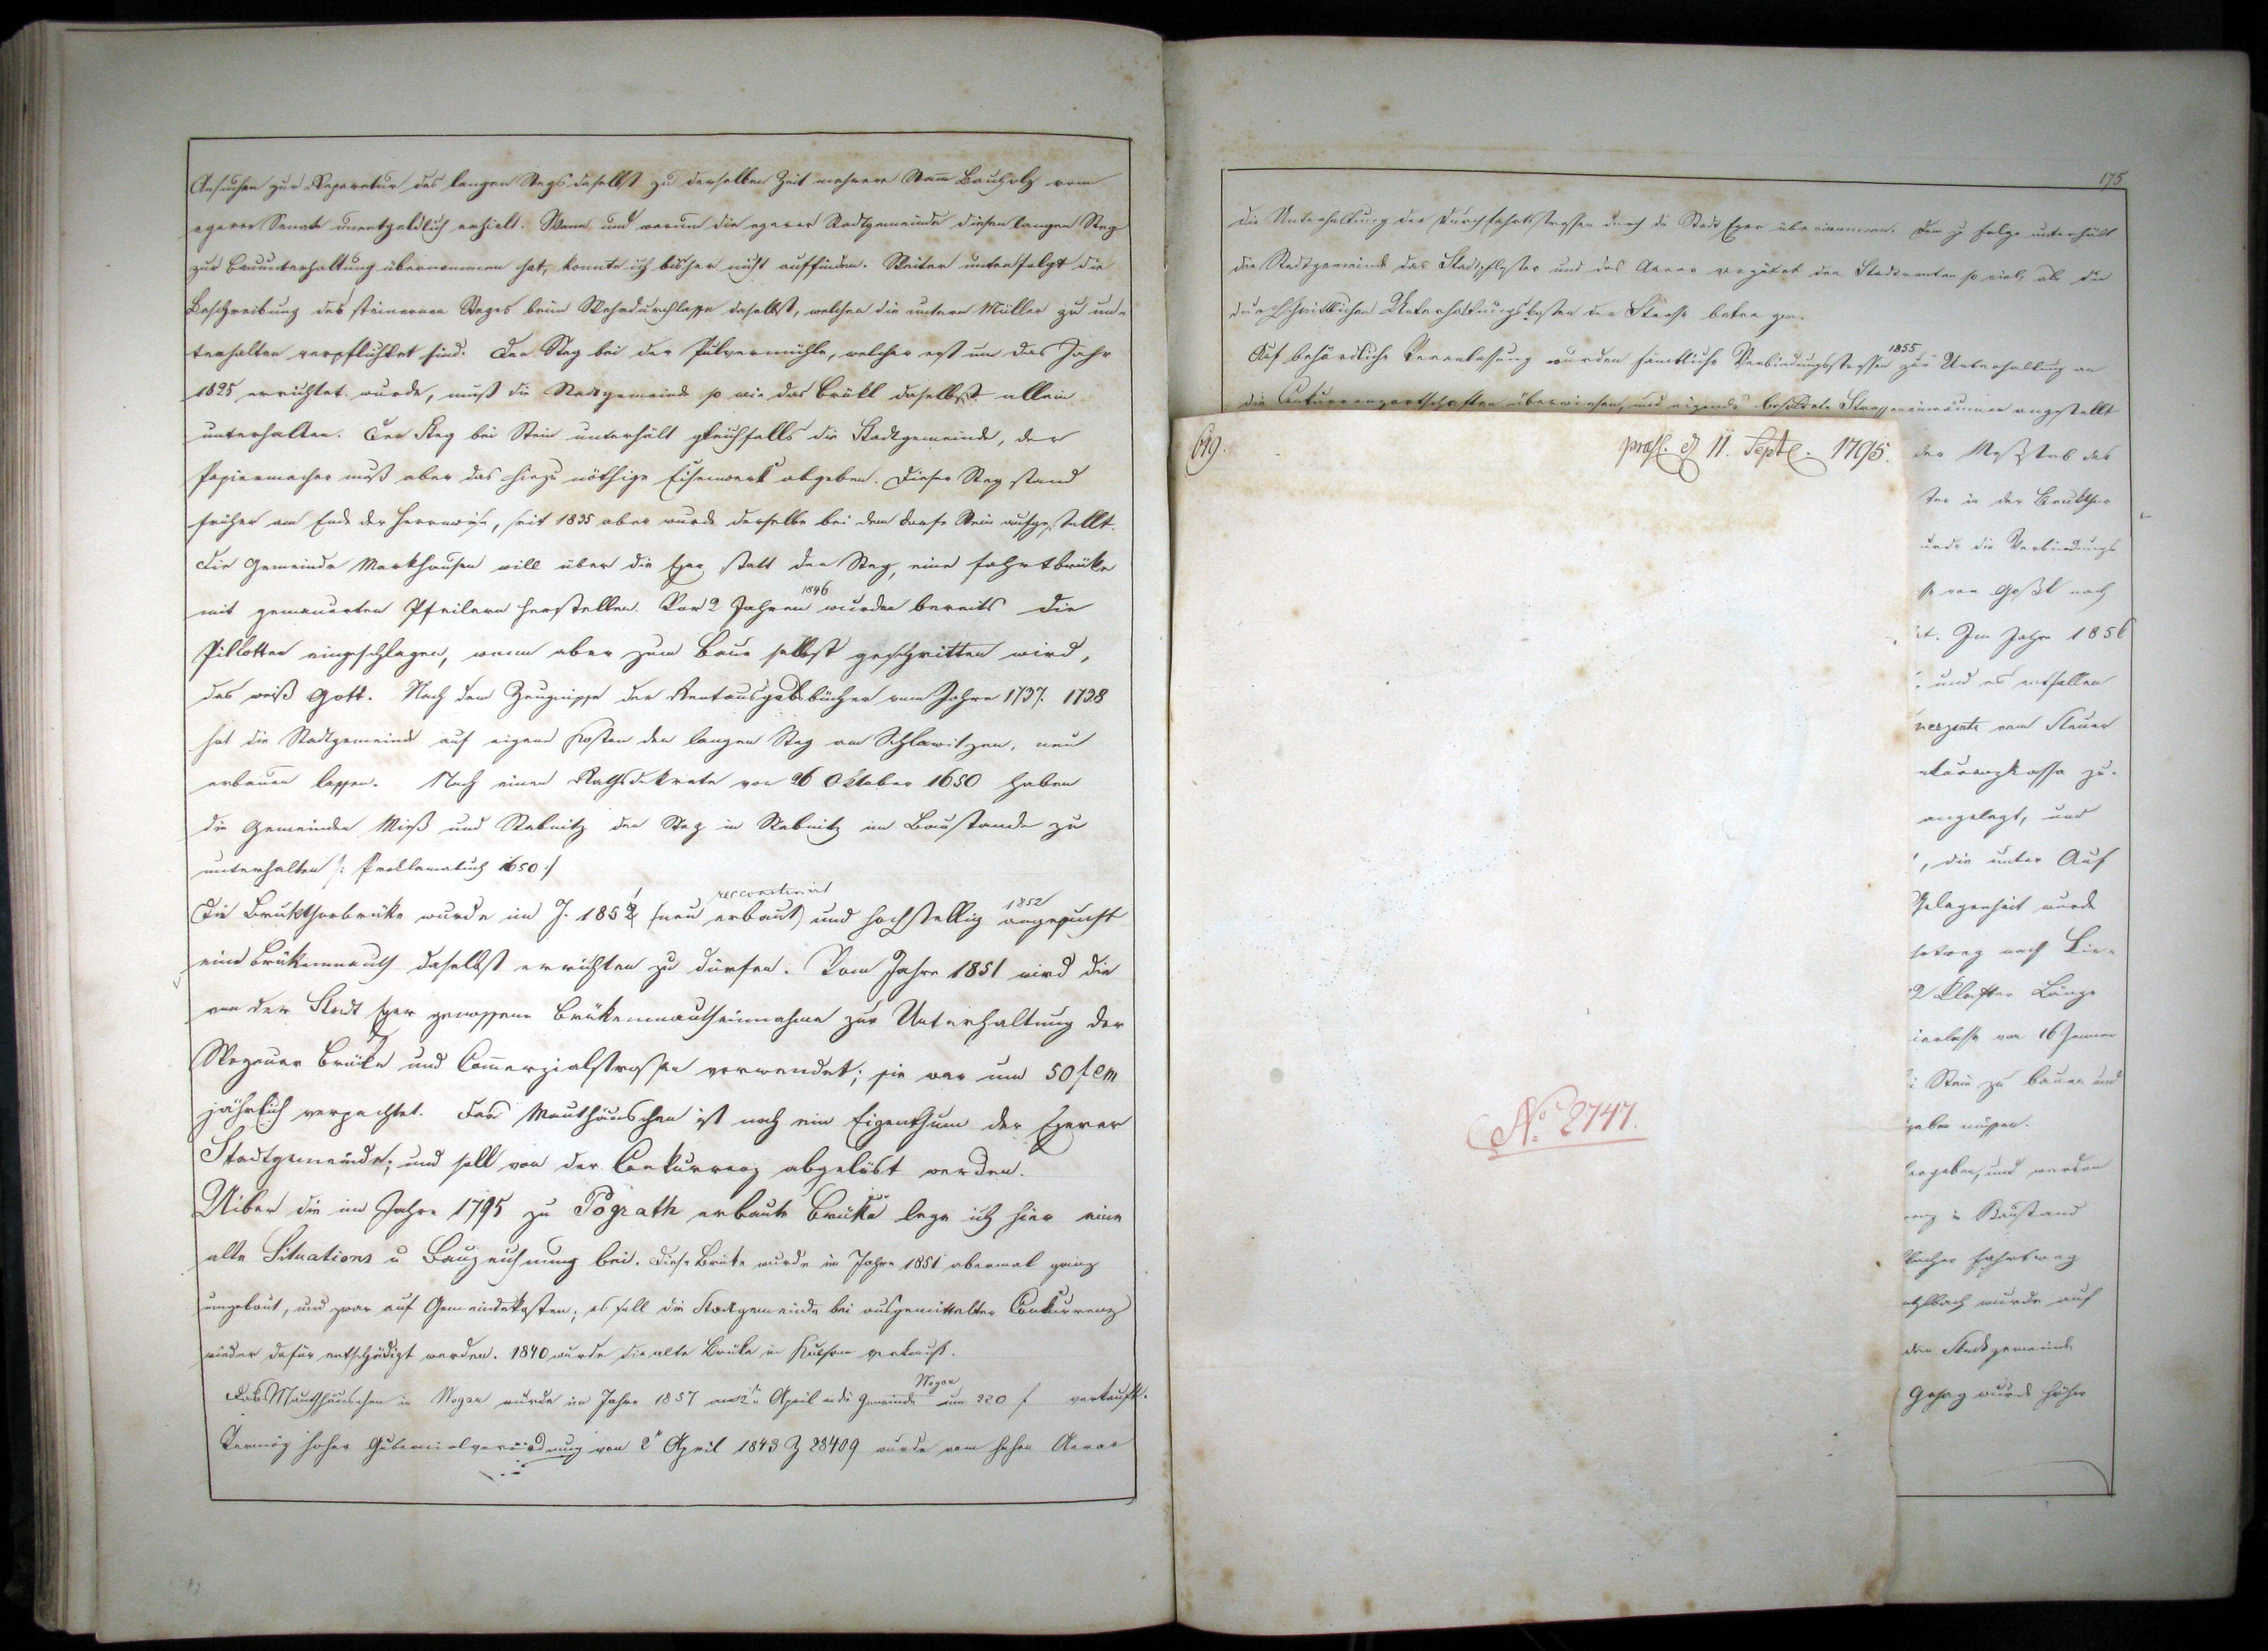 Ansuchen zur Reparatur des langen Stegs daselbst zu derselben Zeit mehrere Stam̄ Bauholz vom
egerer Senate unentgeldlich erhielt. Wann und warum die egerer Stadtgemeinde diesen langen Steg
zur Bauunterhaltung übernommen hat, konnte ich bisher nicht auffinden. Weiter unten folgt die
Beschreibung des steinernen Steges beim Wehrdurchlasse daselbst, welchen die untern Müller zu un-
terhalten verpflichtet sind. Der Steg bei der Pulvermühle, welcher erst um das Jahr
1825 errichtet wurde, muß die Stadtgemeinde so wie das Brükl daselbst allein
unterhalten. Der Steg bei Stein unterhält gleichfalls die Stadtgemeinde, der
Papiermacher muß aber das hiezu nöthige Eisenwerk abgeben. Dieser Steg stand
früher am Ende der Herrnwiese, seit 1835 aber wurde derselbe bei dem Dorfe Stein aufgestellt.
Die Gemeinde Markhausen will über die Eger statt den Steg, eine Fahrtbrüke
mit gemauerten Pfeilern herstellen. Vor 2 Jahren 1846 wurden bereits die
Pillotten eingeschlagen, wann aber zum Baue selbst geschritten wird,
das weiß Gott. Nach dem Zeugnisse der Rentausgabsbücher vom Jahre 1737. 1738
hat die Stadtgemeinde auf eigene Kosten den langen Steg am Schlawitzen, neu
erbauen lassen. Nach einem Rathsdekrete von 26 Oktober 1650 haben
die Gemeinden Mieß und Stabnitz den Steg in Stabnitz im Baustande zu
unterhalten /: Proklamabuch 1650 :/
Die Brukthorbrüke wurde im J. 1851 (neu erbaut) reconstruirt und hochstellig 1852 angesucht
eine Brükenmauth daselbst errichten zu dürfen. Vom Jahre 1851 wird die
von der Stadt Eger genossene Brükenmautheinnahme zur Unterhaltung der
Wogauer Brüke und Com̄erzialstrassen verwendet; sie war um 50 f CM
jährlich verpachtet. Das Mauthhäuschen ist noch ein Eigenthum der Egerer
Stadtgemeinde; und soll von der Conkurrenz abgelöst werden.
Uiber die im Jahre 1795 zu Pograth erbaute Brüke lege ich hier eine
alte Situations u Bauzeichnung bei. Diese Brüke wurde im Jahre 1851 abermal ganz
umgebaut, und zwar auf Gemeindekosten; es soll die Stadtgemeinde bei ausgemittelter Conkurrenz
wieder dafür entschädigt werden. 1840 wurde die alte Brüke in Kulsam verkauft.
Das Mauthhäuschen in Wogau wurde im Jahre 1857 am 2 April an die Gemeinde Wogau um 220 f verkauft.
Vermög hoher Gubernialverordnung von 2 April 1843 Z 28409 wurde vom hohen Aerar
175
die Unterhaltung der Durchfahrtsstrassen durch die Stadt Eger übernommen. Dem zu Folge unterhält
die Stadtgemeinde das Stadtpflaster und das Aerar vergütet den Stadtrenten so viel, als die
durchschnittlichen Unterhaltungskosten der Strasse betragen.
Auf behördliche Veranlassung wurden sämtliche Verbindungsstrassen 1855 zur Unterhaltung an
die Conkurrenzortschaften überwiesen, und eigends besoldete Strasseneinräumer angestellt
619.
praes. d 11. Septe. 1795.
No 2747.
der Maßstab des
ter in der Brukthor
urde die Verbindungs
se von Goßl nach
it. Im Jahre 1856
, und es entfallen
perzente vom Steuer
nkurrenzkasse zu-
angelegt, und
, die unter Auf
Gelegenheit wurde
2 Klafter Länge
ierlasse von 16 Jänner
i Stein zu bauen und
geben müssen.
bergeben, und werden
renz in Baustand
Fahrtweg
bach wurde auf
der Stadtgemeinde
Gehag wurde höher